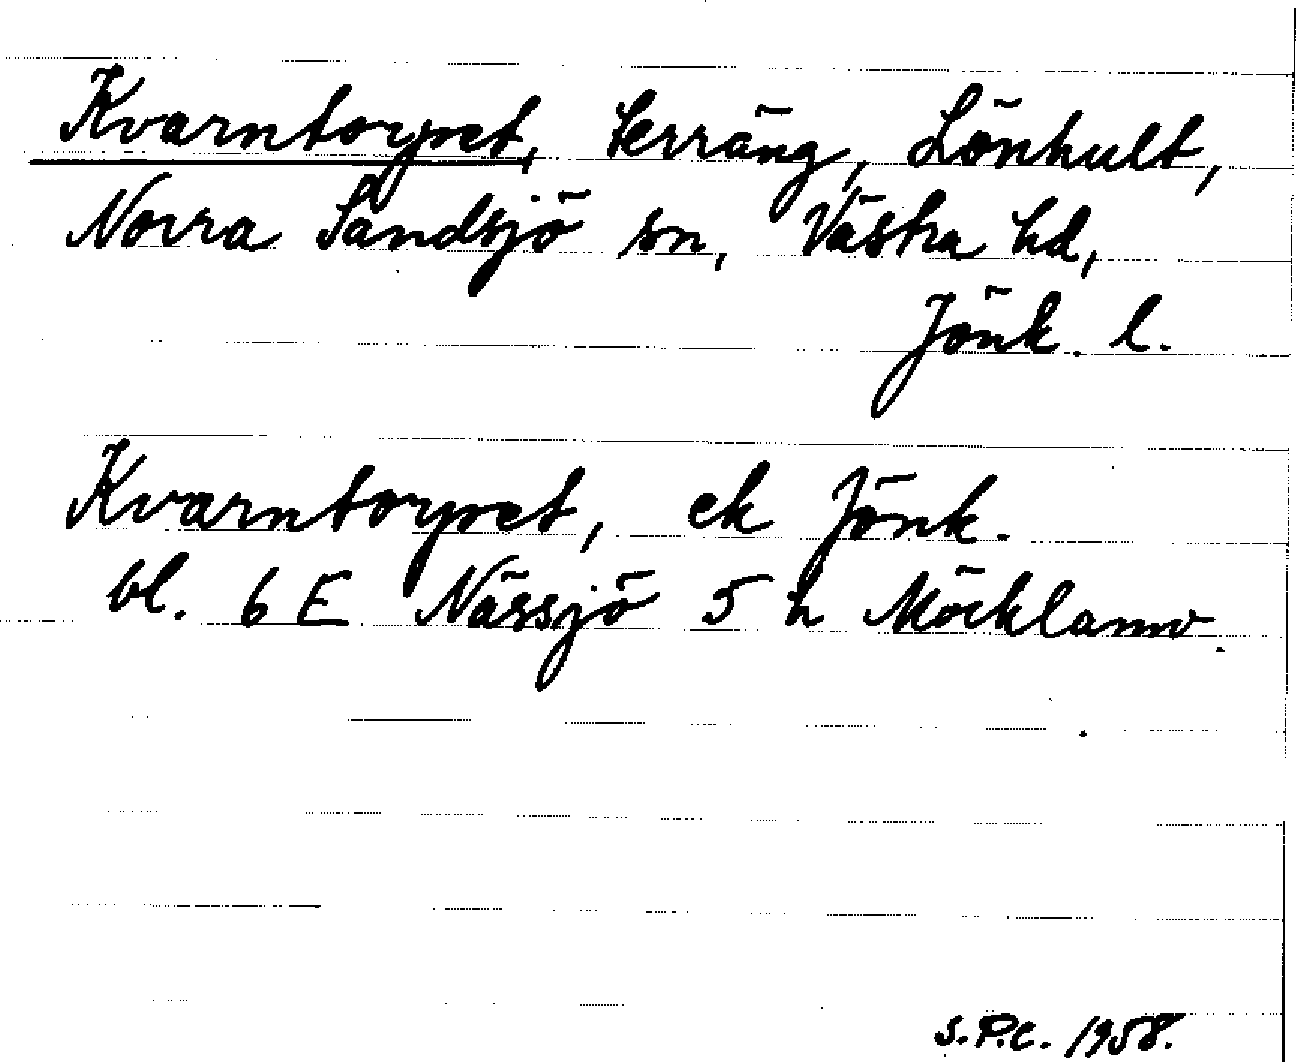 Kvarntorpet, terräng, Lönhult,
Norra Sandsjö sn, Västra hd,
Jönk. l.
Kvarntorpet, ek Jönk.
bl. 6 E Nässjö 5 h Möcklamo.
S.P.C. 1958.